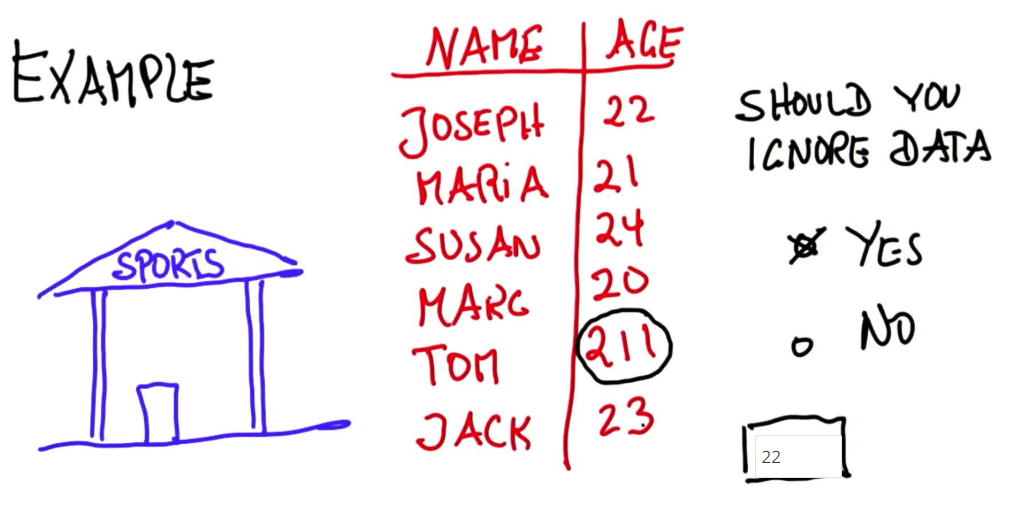 EXAMPLE
SPORTS
NAME AGE
JOSEPH 22
MARiA 21
SUSAN 24
MARC 20
TOM 211
JACK 23
SHOULD YOU
IGNORE DATA
YES
NO
22